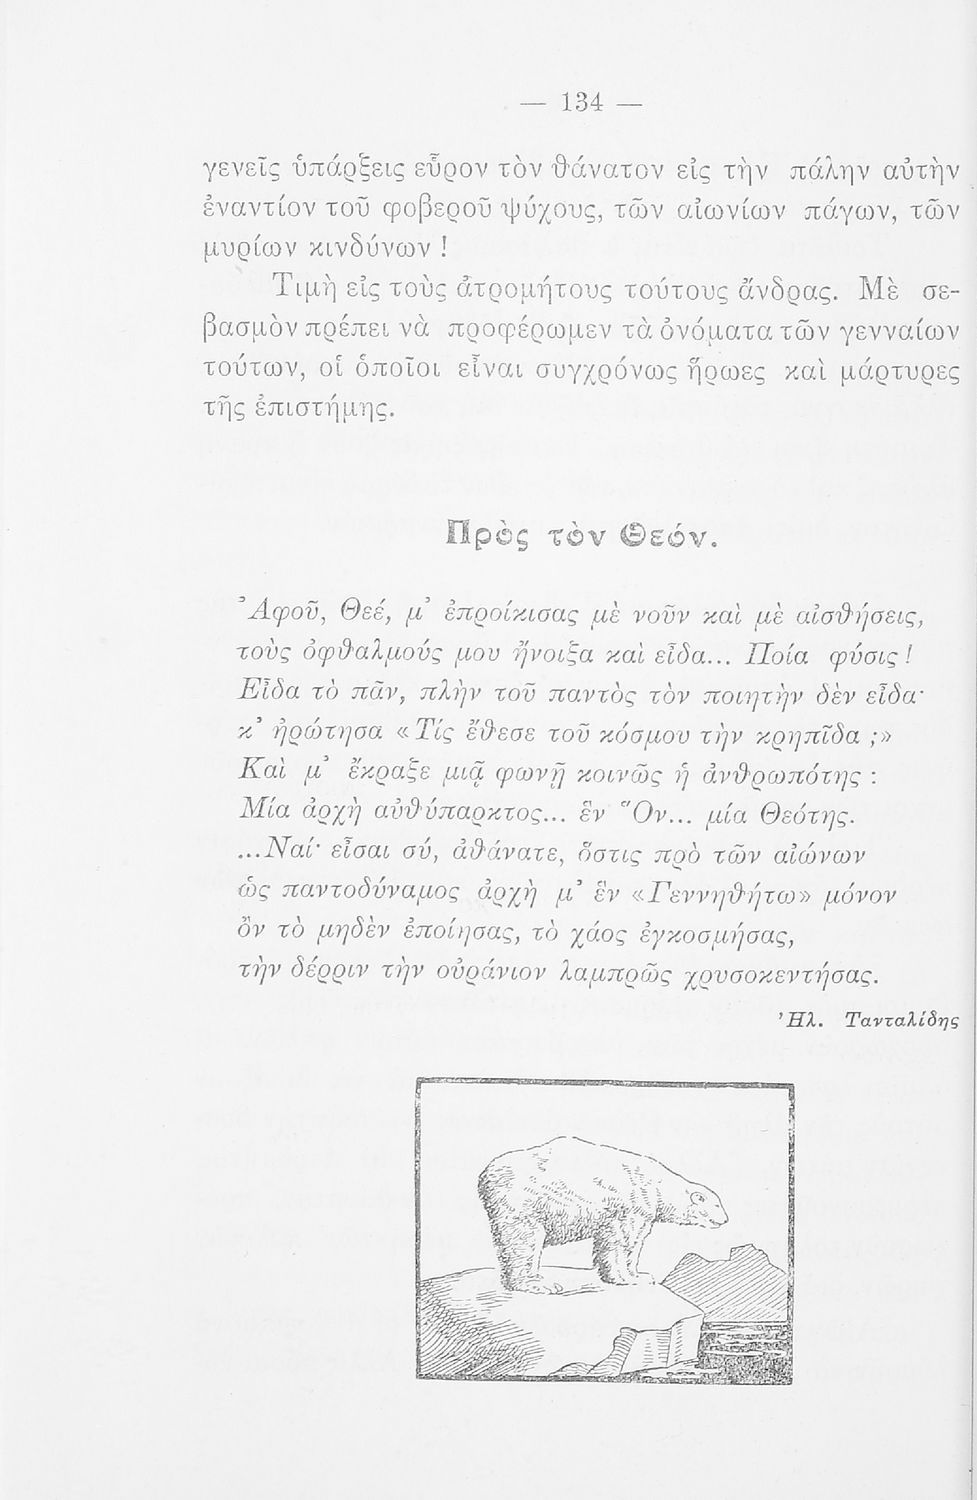 — 134 —
γενεῖς ὑπάρξεις εὗρον τὸν θάνατον εἰς τὴν πάλην αὐτὴν
ἐναντίον τοῦ φοβεροῦ ψύχους, τῶν αἰωνίων πάγων, τῶν
μυρίων κινδύνων !
Τιμὴ εἰς τοὺς ἀτρομήτους τούτους ἄνδρας. Μὲ σε-
βασμὸν πρέπει νὰ προφέρωμεν τὰ ὀνόματα τῶν γενναίων
τούτων, οἱ ὁποῖοι εἶναι συγχρόνως ἥρωες καὶ μάρτυρες
τῆς ἐπιστήμης.
Πρὸς τὸν Θεόν.
Ἀφοῦ, Θεέ, μ᾿ ἐπροίκισας μὲ νοῦν καὶ μὲ αἰσθήσεις,
τοὺς ὀφθαλμούς μου ἤνοιξα καὶ εἶδα... Ποία φύσις !
Εἶδα τὸ πᾶν, πλὴν τοῦ παντὸς τὸν ποιητὴν δὲν εἶδα·
κ᾿ ἠρώτησα «Τίς ἔθεσε τοῦ κόσμου τὴν κρηπῖδα ;»
Καὶ μ᾿ ἔκραξε μιᾷ φωνῇ κοινῶς ἡ ἀνθρωπότης :
Μία ἀρχὴ αὐθύπαρκτος... ἓν Ὂν... μία Θεότης.
...Ναί· εἶσαι σύ, ἀθάνατε, ὅστις πρὸ τῶν αἰώνων
ὡς παντοδύναμος ἀρχὴ μ᾿ ἓν «Γεννηθήτω» μόνον
ὂν τὸ μηδὲν ἐποίησας, τὸ χάος ἐγκοσμήσας,
τὴν δέρριν τὴν οὐράνιον λαμπρῶς χρυσοκεντήσας.
Ἠλ. Τανταλίδης